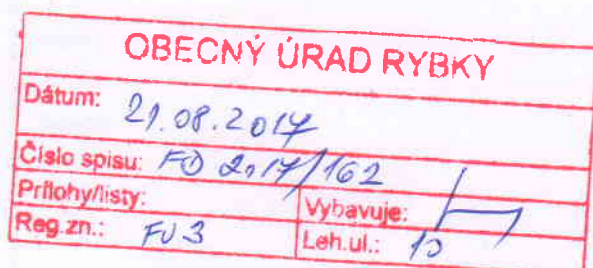 OBECNÝ ÚRAD RYBKY
Dátum: 21.08.2017
Číslo spisu: FO 2017/162
Prílohy/listy:
Vybavuje:
Reg.zn.: FU 3
Leh.ul.: 10